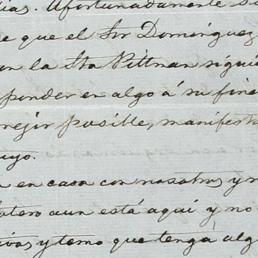 ias. Afortunadamente su
e que el Sor Dominguez
on la Sta Pittman sigui
sponder en algo á su fine
mejor posible, manifesta
uyo.
a en casa con nosotros y n
otero aun está aqui y no
ivos, y temo que tenga alg